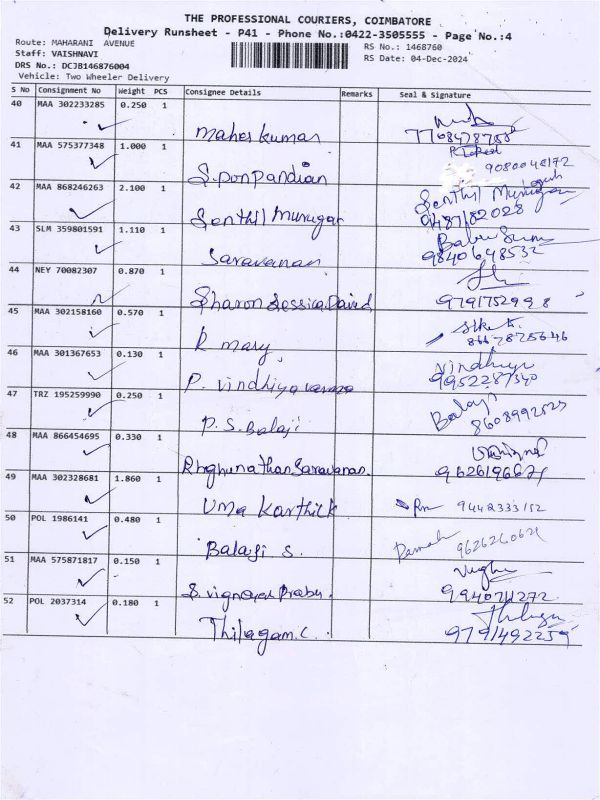 THE PROFESSIONAL COURIERS, COIMBATORE
Delivery Runsheet - P41 - Phone No.:0422-3505555 - Page No.:4
Route: MAHARANI AVENUE
Staff: VAISHNAVI
DRS No.: DCJB146876004
Vehicle: Two Wheeler Delivery
RS No.: 1468760
RS Date: 04-Dec-2024
S No Consignment No Weight PCS Consignee Details Remarks Seal & Signature
40 MAA 302233285 0.250 1
Mahes kumar
41 MAA 575377348 1.000 1
S.pon pandian 9080048172
42 MAA 868246263 2.100 1
Senthil Murugan Senthil Murugan
43 SLM 359801591 1.110 1
Saravanan 9840648532
44 NEY 70082307 0.870 1
Sharon Jessica David 9791752998
45 MAA 302158160 0.570 1
R mary
46 MAA 301367653 0.130 1
P. vindhiya
47 TRZ 195259990 0.250 1
P.S.Balaji Balaji 8608992523
48 MAA 866454695 0.330 1
Rhghunathan Saravanan
49 MAA 302328681 1.860 1
Uma Karthik 9442333152
50 POL 1986141 0.480 1
Balaji S.
51 MAA 575871817 0.150 1
S. vignesh Prabu
52 POL 2037314 0.180 1
Thilagam.C. 9791492259